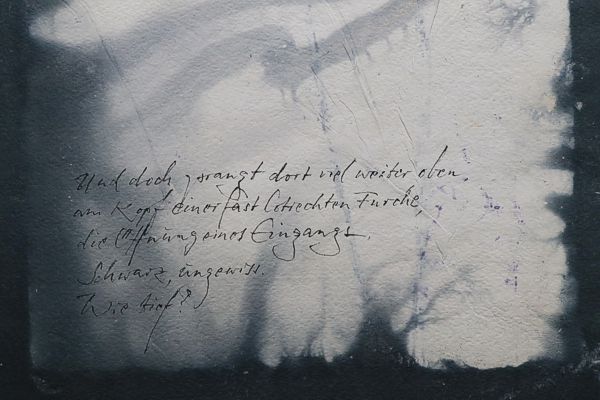 Und doch, prangt dort viel weiter oben,
am Kopf einer fast lotrechten Furche,
die Öffnung eines Eingangs.
Schwarz, ungewiss.
Wie tief?